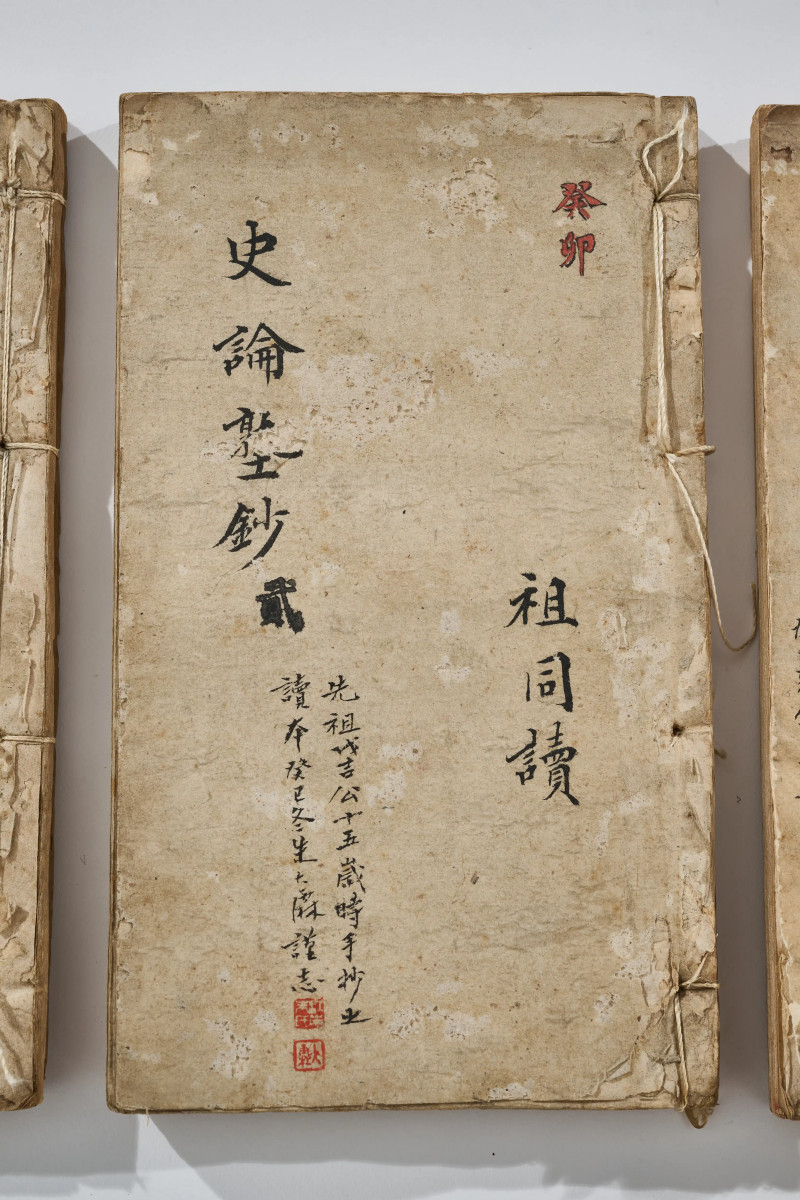 癸卯
祖同讀
史論壐鈔
貳
先祖戊吉公十五歲時手抄之
讀本癸巳冬朱大霖謹志